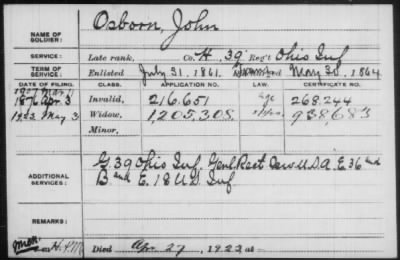 NAME OF SOLDIER: Osborn, John
SERVICE: Late rank, Co. H, 39 Reg't Ohio Inf
TERM OF SERVICE: Enlisted July 31, 1861. May 30, 1864
DATE OF FILING. CLASS. APPLICATION NO. LAW. CERTIFICATE NO.
1907 Mar
1876 Apr. 3 Invalid, 216.651 268.244
1923 May 3 Widow, 1,205,308 938,683
Minor,
ADDITIONAL SERVICES: G. 39 Ohio Inf. Genl. Rect U.S.A. E 36 and
B and E. 18 U.S. Inf
REMARKS:
Died Apr. 27, 1923 at